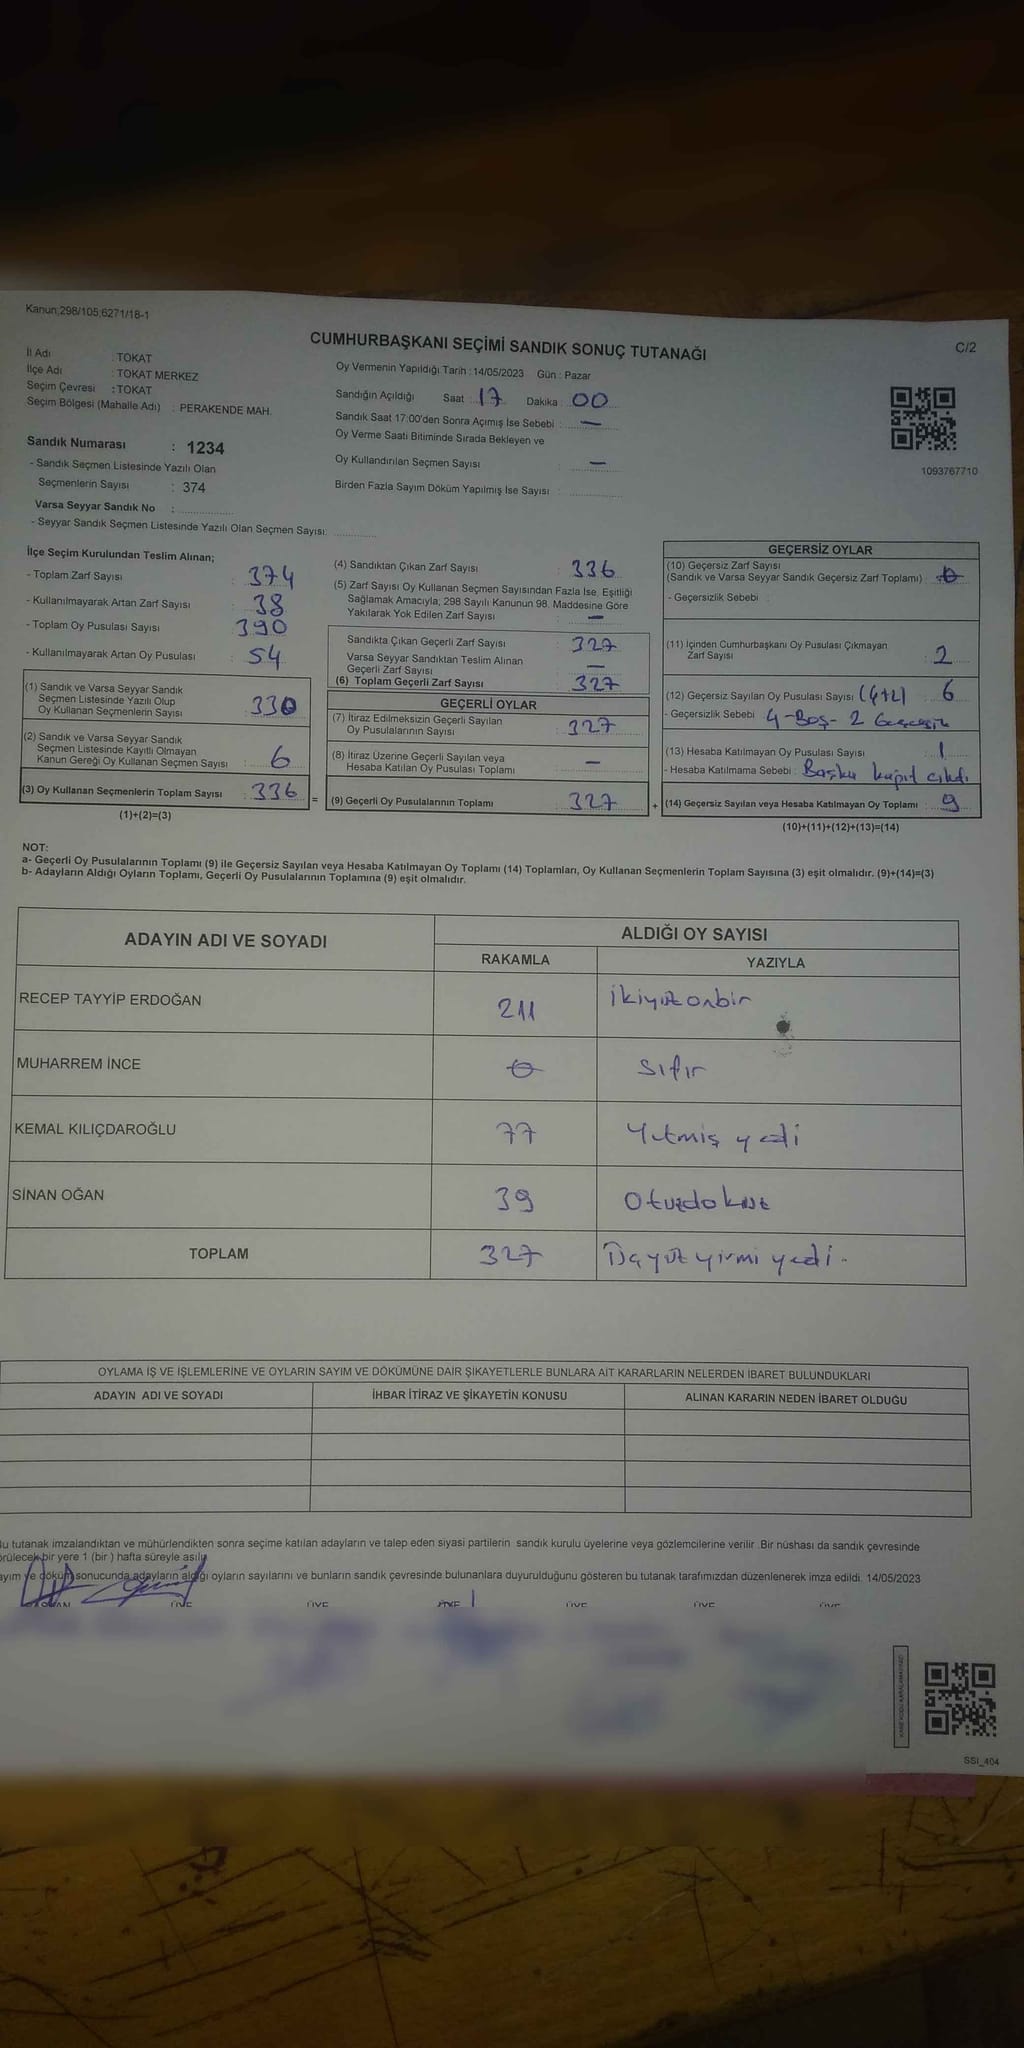 Kanun;298/105;6271/18-1
C/2
CUMHURBAŞKANI SEÇİMİ SANDIK SONUÇ TUTANAĞI
İl Adı : TOKAT
İlçe Adı : TOKAT MERKEZ
Seçim Çevresi : TOKAT
Seçim Bölgesi (Mahalle Adı) : PERAKENDE MAH.
Sandık Numarası : 1234
- Sandık Seçmen Listesinde Yazılı Olan
Seçmenlerin Sayısı : 374
Varsa Seyyar Sandık No :
- Seyyar Sandık Seçmen Listesinde Yazılı Olan Seçmen Sayısı:
Oy Vermenin Yapıldığı Tarih :14/05/2023 Gün : Pazar
Sandığın Açıldığı Saat : 17 Dakika : 00
Sandık Saat 17:00'den Sonra Açımış İse Sebebi : —
Oy Verme Saati Bitiminde Sırada Bekleyen ve
Oy Kullandırılan Seçmen Sayısı : —
Birden Fazla Sayım Döküm Yapılmış İse Sayısı :
1093767710
İlçe Seçim Kurulundan Teslim Alınan;
- Toplam Zarf Sayısı : 374
- Kullanılmayarak Artan Zarf Sayısı : 38
- Toplam Oy Pusulası Sayısı : 390
- Kullanılmayarak Artan Oy Pusulası : 54
(1) Sandık ve Varsa Seyyar Sandık
Seçmen Listesinde Yazılı Olup
Oy Kullanan Seçmenlerin Sayısı : 330
(2) Sandık ve Varsa Seyyar Sandık
Seçmen Listesinde Kayıtlı Olmayan
Kanun Gereği Oy Kullanan Seçmen Sayısı : 6
(3) Oy Kullanan Seçmenlerin Toplam Sayısı : 336 =
(1)+(2)=(3)
(4) Sandıktan Çıkan Zarf Sayısı : 336
(5) Zarf Sayısı Oy Kullanan Seçmen Sayısından Fazla İse, Eşitliği
Sağlamak Amacıyla, 298 Sayılı Kanunun 98. Maddesine Göre
Yakılarak Yok Edilen Zarf Sayısı : —
Sandıkta Çıkan Geçerli Zarf Sayısı : 327
Varsa Seyyar Sandıktan Teslim Alınan
Geçerli Zarf Sayısı : —
(6) Toplam Geçerli Zarf Sayısı : 327
GEÇERLİ OYLAR
(7) İtiraz Edilmeksizin Geçerli Sayılan
Oy Pusulalarının Sayısı : 327
(8) İtiraz Üzerine Geçerli Sayılan veya
Hesaba Katılan Oy Pusulası Toplamı : —
(9) Geçerli Oy Pusulalarının Toplamı : 327 +
GEÇERSİZ OYLAR
(10) Geçersiz Zarf Sayısı
(Sandık ve Varsa Seyyar Sandık Geçersiz Zarf Toplamı) : 0
- Geçersizlik Sebebi :
(11) İçinden Cumhurbaşkanı Oy Pusulası Çıkmayan
Zarf Sayısı : 2
(12) Geçersiz Sayılan Oy Pusulası Sayısı (4+2) : 6
- Geçersizlik Sebebi : 4-Boş- 2 Geçersiz
(13) Hesaba Katılmayan Oy Pusulası Sayısı : 1
- Hesaba Katılmama Sebebi : Başka kağıt çıktı
(14) Geçersiz Sayılan veya Hesaba Katılmayan Oy Toplamı : 9
(10)+(11)+(12)+(13)=(14)
NOT:
a- Geçerli Oy Pusulalarının Toplamı (9) ile Geçersiz Sayılan veya Hesaba Katılmayan Oy Toplamı (14) Toplamları, Oy Kullanan Seçmenlerin Toplam Sayısına (3) eşit olmalıdır. (9)+(14)=(3)
b- Adayların Aldığı Oyların Toplamı, Geçerli Oy Pusulalarının Toplamına (9) eşit olmalıdır.
ADAYIN ADI VE SOYADI ALDIĞI OY SAYISI
RAKAMLA YAZIYLA
RECEP TAYYİP ERDOĞAN 211 ikiyüzonbir
MUHARREM İNCE 0 sıfır
KEMAL KILIÇDAROĞLU 77 Yetmiş yedi
SİNAN OĞAN 39 Otuzdokuz
TOPLAM 327 Üçyüz yirmi yedi.
OYLAMA İŞ VE İŞLEMLERİNE VE OYLARIN SAYIM VE DÖKÜMÜNE DAİR ŞİKAYETLERLE BUNLARA AİT KARARLARIN NELERDEN İBARET BULUNDUKLARI
ADAYIN ADI VE SOYADI İHBAR İTİRAZ VE ŞİKAYETİN KONUSU ALINAN KARARIN NEDEN İBARET OLDUĞU
Bu tutanak imzalandıktan ve mühürlendikten sonra seçime katılan adayların ve talep eden siyasi partilerin sandık kurulu üyelerine veya gözlemcilerine verilir .Bir nüshası da sandık çevresinde
görülecek bir yere 1 (bir ) hafta süreyle asılır
Sayım ve döküm sonucunda adayların aldığı oyların sayılarını ve bunların sandık çevresinde bulunanlara duyurulduğunu gösteren bu tutanak tarafımızdan düzenlenerek imza edildi. 14/05/2023
BAŞKAN ÜYE ÜYE ÜYE ÜYE ÜYE ÜYE
SSI_404